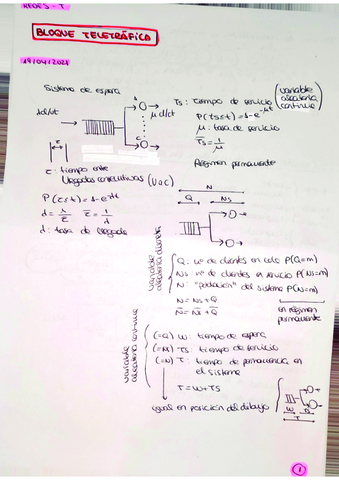 REDES - T
BLOQUE TELETRÁFICO
19/04/2021
Sistema de espera
λd/dt
1
c
μ d/dt
Ts: tiempo de servicio (variable aleatoria continua)
P(Ts≤t) = 1-e^-μt
μ: tasa de servicio
T̄s = 1/μ
Régimen permanente
τ
τ: tiempo entre
llegadas consecutivas (v.a.c)
P(τ≤t) = 1-e^-λt
τ̄ = 1/λ
λ: tasa de llegada
N
Q Ns
variable aleatoria discreta
Q: nº de clientes en cola P(Q=m)
Ns: nº de clientes en servicio P(Ns=m)
N: "población" del sistema P(N=m)
N = Ns+Q
N̄ = N̄s + Q̄
en régimen permanente
variable aleatoria continua
(=Q) W: tiempo de espera
(=Ns) Ts: tiempo de servicio
(=N) T: tiempo de permanencia en
el sistema
T = W+Ts
igual en posición del dibujo
W Ts
T
1